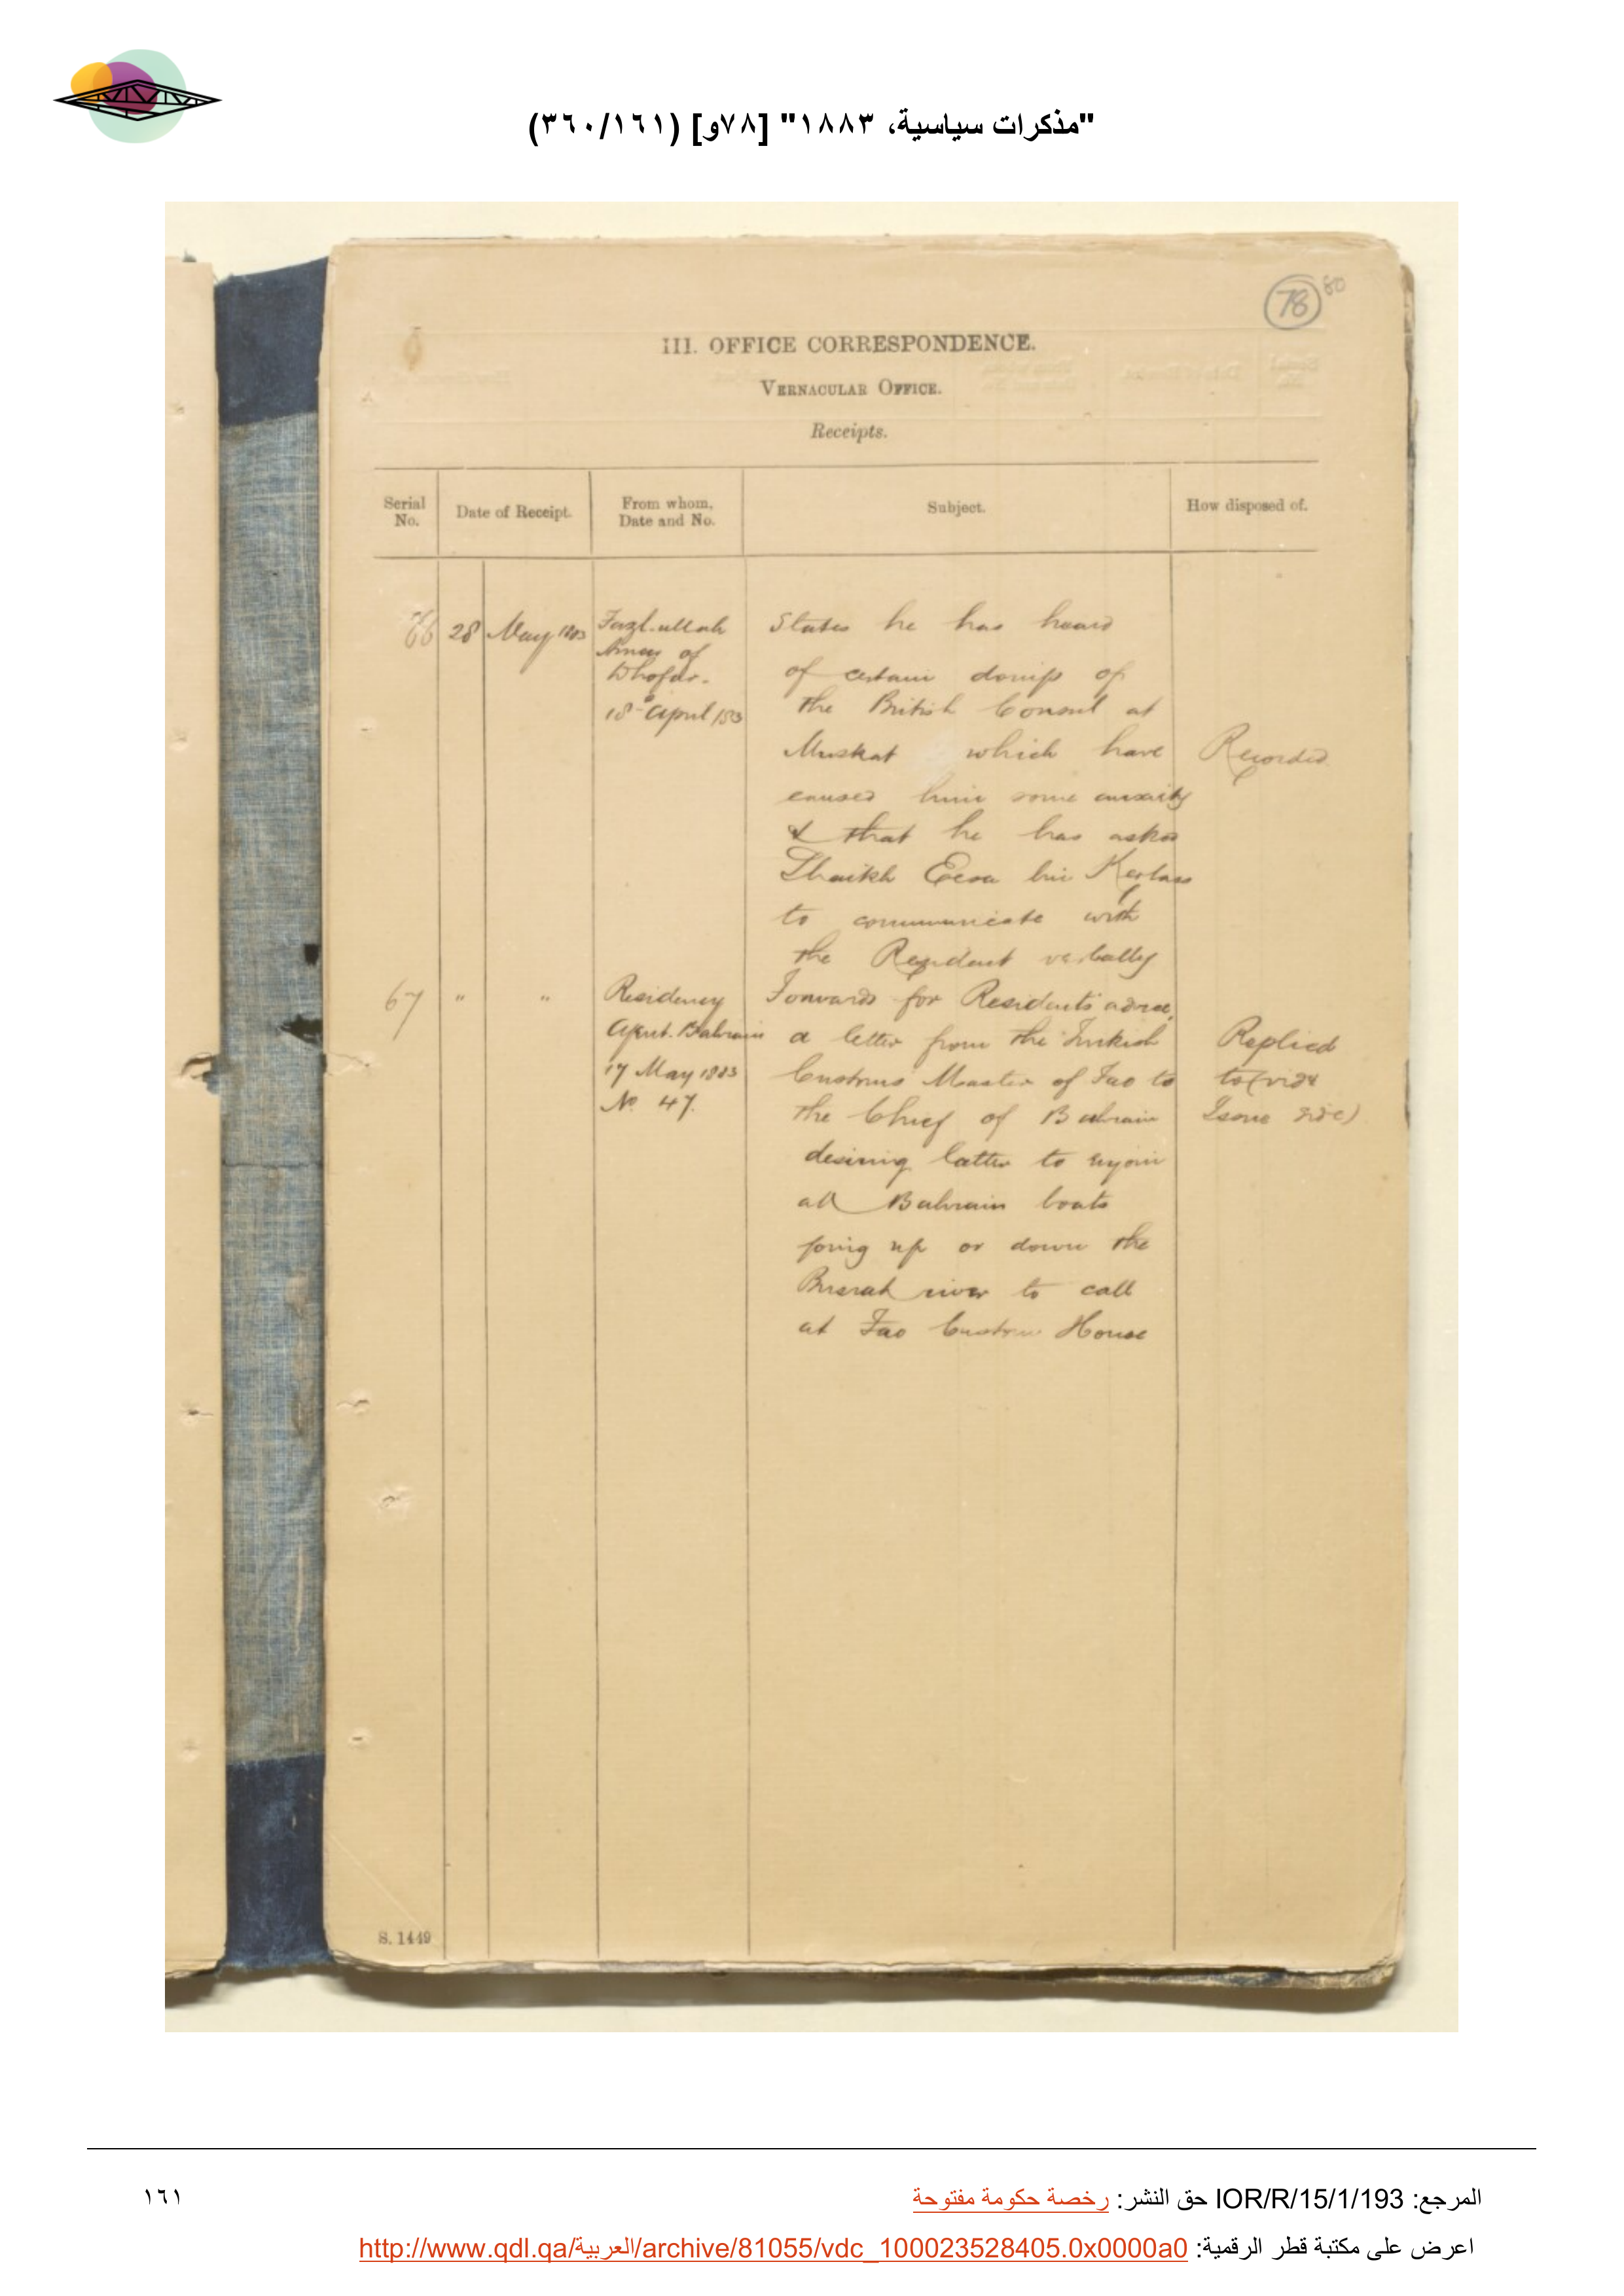 "مذكرات سياسية، ١٨٨٣" [٧٨و] (٣٦٠/١٦١)
78 80
III. OFFICE CORRESPONDENCE.
VERNACULAR OFFICE.
Receipts.
Serial No.
Date of Receipt.
From whom, Date and No.
Subject.
How disposed of.
66
28 May 1883
Fazl-ullah
Ameer of
Dhofar.
18th April /83
States he has heard
of certain doings of
the British Consul at
Muskat which have
caused him some anxiety
& that he has asked
Shaikh Eesa bin
to communicate with
the Resident verbally
Recorded
67
" "
Residency
Agent. Bahrain
17 May 1883
No. 47.
Forwards for Resident's advice,
a letter from the Turkish
Customs Master of Fao to
the Chief of Bahrain
desiring latter to enjoin
all Bahrain boats
going up or down the
Busrah river to call
at Fao Custom House
Replied
to (vide
Issue side)
S. 1449
المرجع: IOR/R/15/1/193 حق النشر: رخصة حكومة مفتوحة
١٦١
اعرض على مكتبة قطر الرقمية: http://www.qdl.qa/العربية/archive/81055/vdc_100023528405.0x0000a0